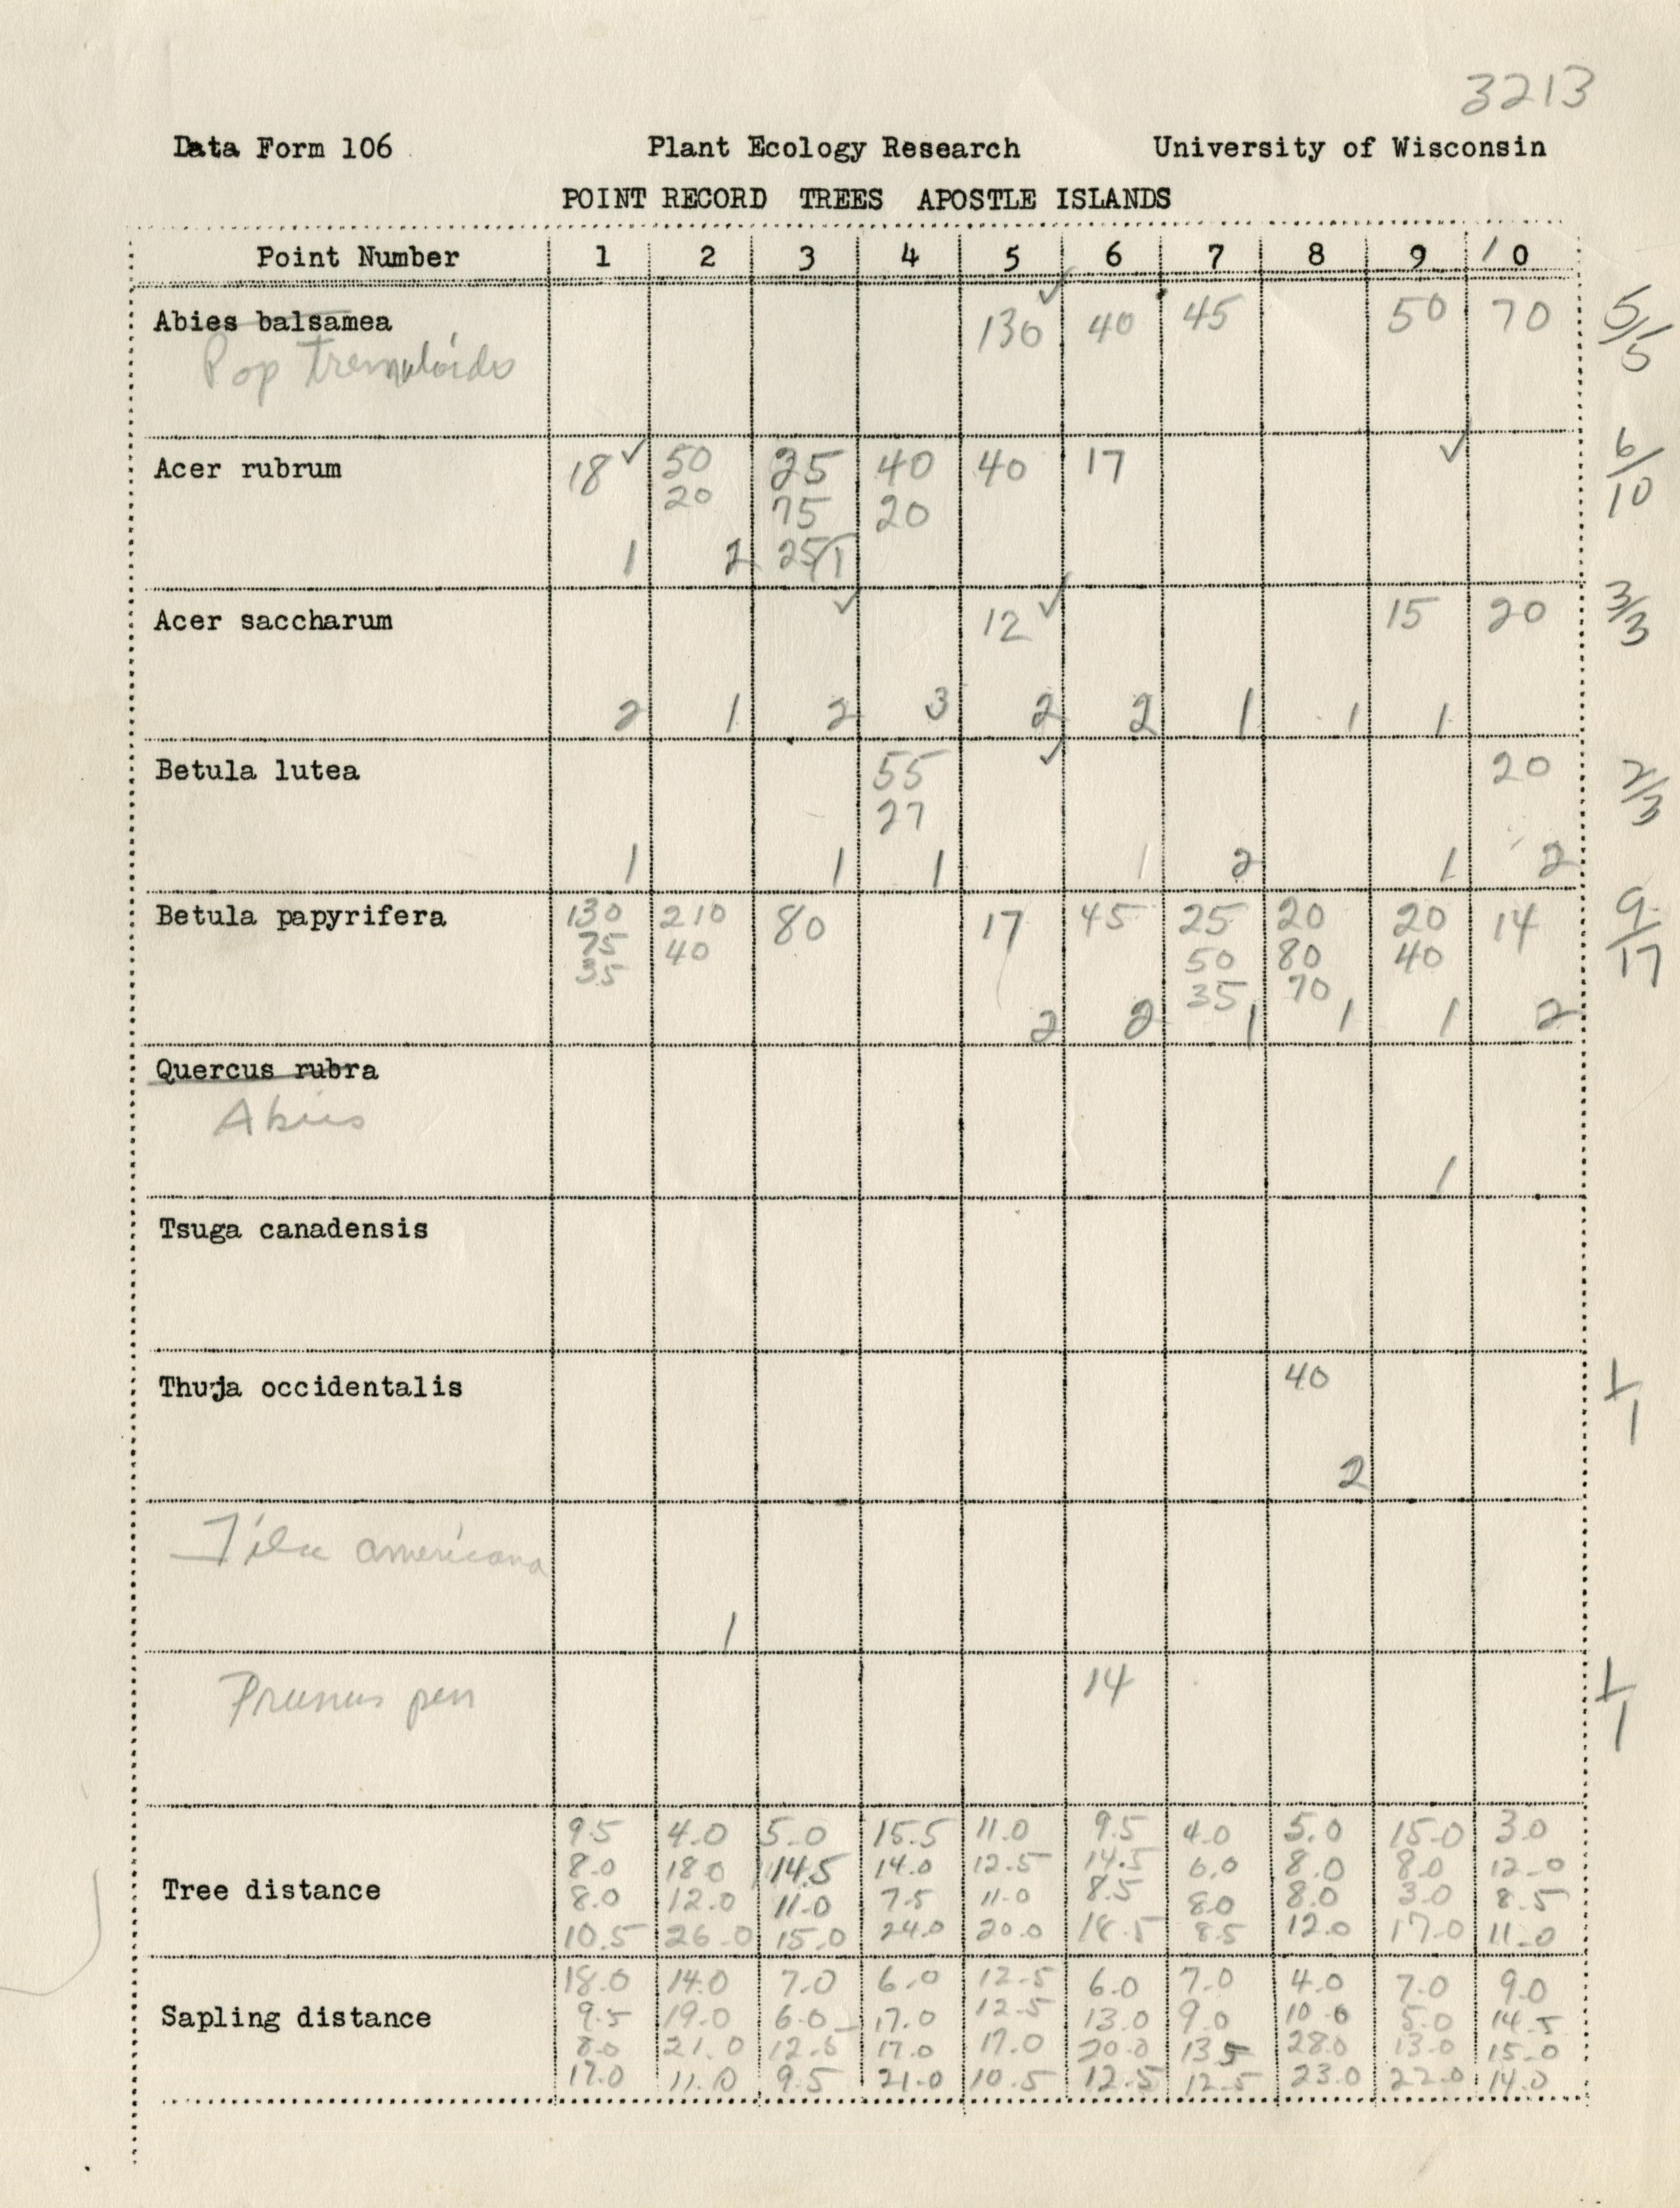 3213
Data Form 106 Plant Ecology Research University of Wisconsin
POINT RECORD TREES APOSTLE ISLANDS
Point Number 1 2 3 4 5 6 7 8 9 10
Abies balsamea 130 ✓ 40 45 50 70 5/5
Pop tremuloides
Acer rubrum 18 ✓ 50 25 40 40 17 ✓ 6/10
20 75 20
1 2 25/1
Acer saccharum ✓ 12 ✓ 15 20 3/3
2 1 2 3 2 2 1 1 1
Betula lutea 55 ✓ 20 2/3
27
1 1 1 1 2 1 2
Betula papyrifera 130 210 80 17 45 25 20 20 14 9/17
75 40 50 80 40
35 35 70
2 2 1 1 1 2
Quercus rubra
Abies
1
Tsuga canadensis
Thuja occidentalis 40 1/1
2
Tilia americana
1
Prunus pen 14 1/1
9.5 4.0 5.0 15.5 11.0 9.5 4.0 5.0 15.0 3.0
8.0 18.0 14.5 14.0 12.5 14.5 6.0 8.0 8.0 12.0
Tree distance
8.0 12.0 11.0 7.5 11.0 8.5 8.0 8.0 3.0 8.5
10.5 26.0 15.0 24.0 20.0 18.5 8.5 12.0 17.0 11.0
18.0 14.0 7.0 6.0 12.5 6.0 7.0 4.0 7.0 9.0
Sapling distance 9.5 19.0 6.0 17.0 12.5 13.0 9.0 10.0 5.0 14.5
8.0 21.0 12.5 17.0 17.0 20.0 13.5 28.0 13.0 15.0
17.0 11.0 9.5 21.0 10.5 12.5 12.5 23.0 22.0 14.0